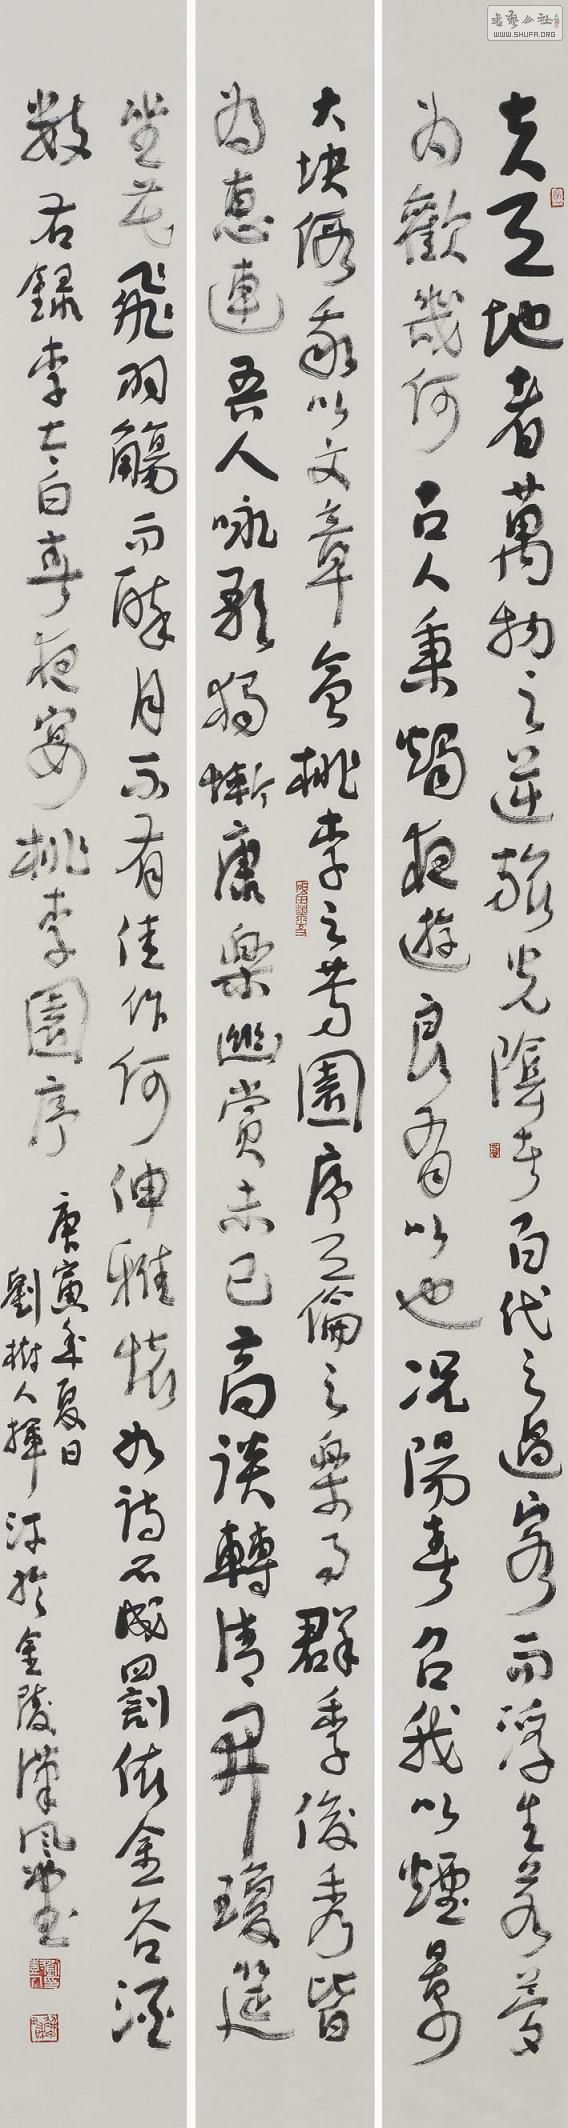 夫天地者萬物之逆旅光陰者百代之過客而浮生若夢
为歡幾何古人秉燭夜遊良有以也况陽春召我以煙景
大块假我以文章會桃李之芳園序天倫之樂事群季俊秀皆
為惠連吾人咏歌獨慚康樂幽赏未已高談轉清開瓊筵
坐花飛羽觴而醉月不有佳作何伸雅懷如詩不成罰依金谷酒
數右錄李太白春夜宴桃李園序
庚寅年夏日
劉樹人揮汗於金陵漢風堂
書藝公社
WWW.SHUFA.ORG